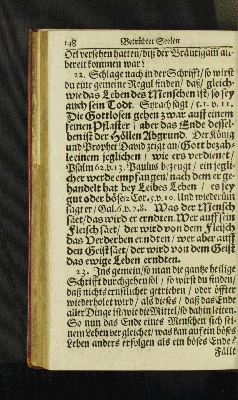 148 Betrübter Seelen
Oel versehen hatten / biß der Bräutigam all-
bereit kommen war?
22. Schlage nach in der Schrifft / so wirst
du eine gemeine Regul finden / daß / gleich-
wie das Leben des Menschen ist / so sey
auch sein Todt. Syrach sagt / c. 21. v. 11.
Die Gottlosen gehen zwar auff einem
feinen Pflaster / aber das Ende dessel-
ben ist der Höllen Abgrund. Der König
und Prophet David zeigt an / Gott bezah-
le einem jeglichen / wie ers verdienet /
Psalm 62. v. 13. Paulus bezeugt / ein jegli-
cher werde empfangen / nach dem er ge-
handelt hat bey Leibes Leben / es sey
gut oder böse 2. Cor. 5. v. 10. Und wiederum
sagt er / Gal. 6. v. 7. 8. Was der Mensch
säet / das wird er erndten. Wer auff sein
Fleisch säet / der wird von dem Fleisch
das Verderben erndten / wer aber auff
den Geist säet / der wird von dem Geist
das ewige Leben erndten.
23. Ins gemein / so man die gantze heilige
Schrifft durchgehen sol / so wirst du finden /
daß nichts ernstlicher getrieben / oder öffter
wiederholet wird / als dieses / daß das Ende
aller Dinge ist / wie die Mittel / so dahin leiten.
So nun das Ende eines Menschen sich sei-
nem Leben vergleichet / was kan auf ein böses
Leben anders erfolgen als ein böses Ende?
Fällt